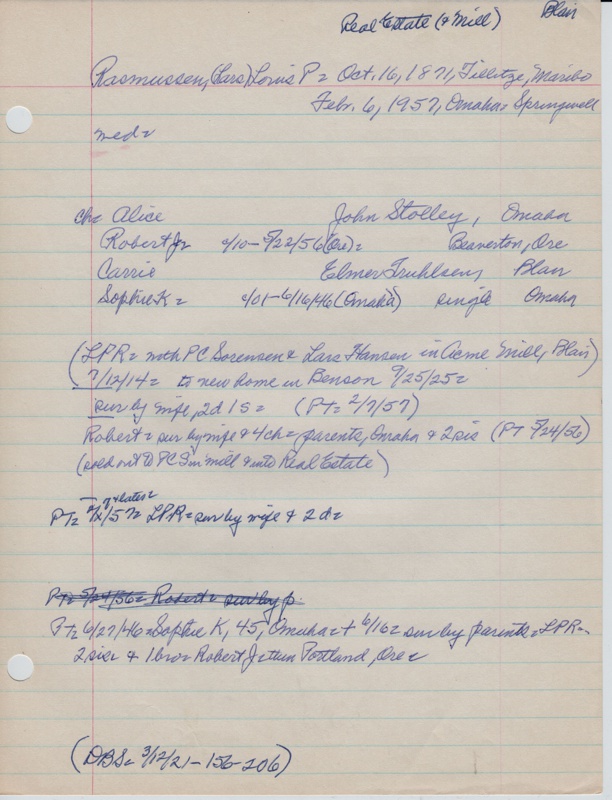 Real Estate (& Mill) Blair
Rasmussen, (Lars) Louis P = Oct. 16, 1871, Tillitze, Maribo
Feb. 6, 1957, Omaha = Springwell
med =
ch = Alice John Stolley, Omaha
Robert J = 4/10 - 5/22/56 (Ore) = Beaverton, Ore
Carrie Elmer Truhlsen, Blair
Sophie K = 4/01 - 6/16/46 (Omaha) single Omaha
(LPR = with PC Sorensen & Lars Hansen in Acme Mill, Blair)
7/12/14 = to new home in Benson 9/25/25 =
sur by wife, 2d 1s = (PT = 2/7/57)
Robert = sur by wife & 4ch = parents, Omaha & 2 sis (PT 5/24/56)
(sold out to PC S in mill & into Real Estate)
PT = /57 = LPR = sur by wife & 2d =
PT = 5/24/56 = Robert = sur by p
PT = 6/27/46 = Sophie K, 45, Omaha = + 6/16 = sur by parents = LPR =
2 sis = & 1 bro = Robert J = Portland, Ore =
(DBS = 3/12/21 - 156 - 206)